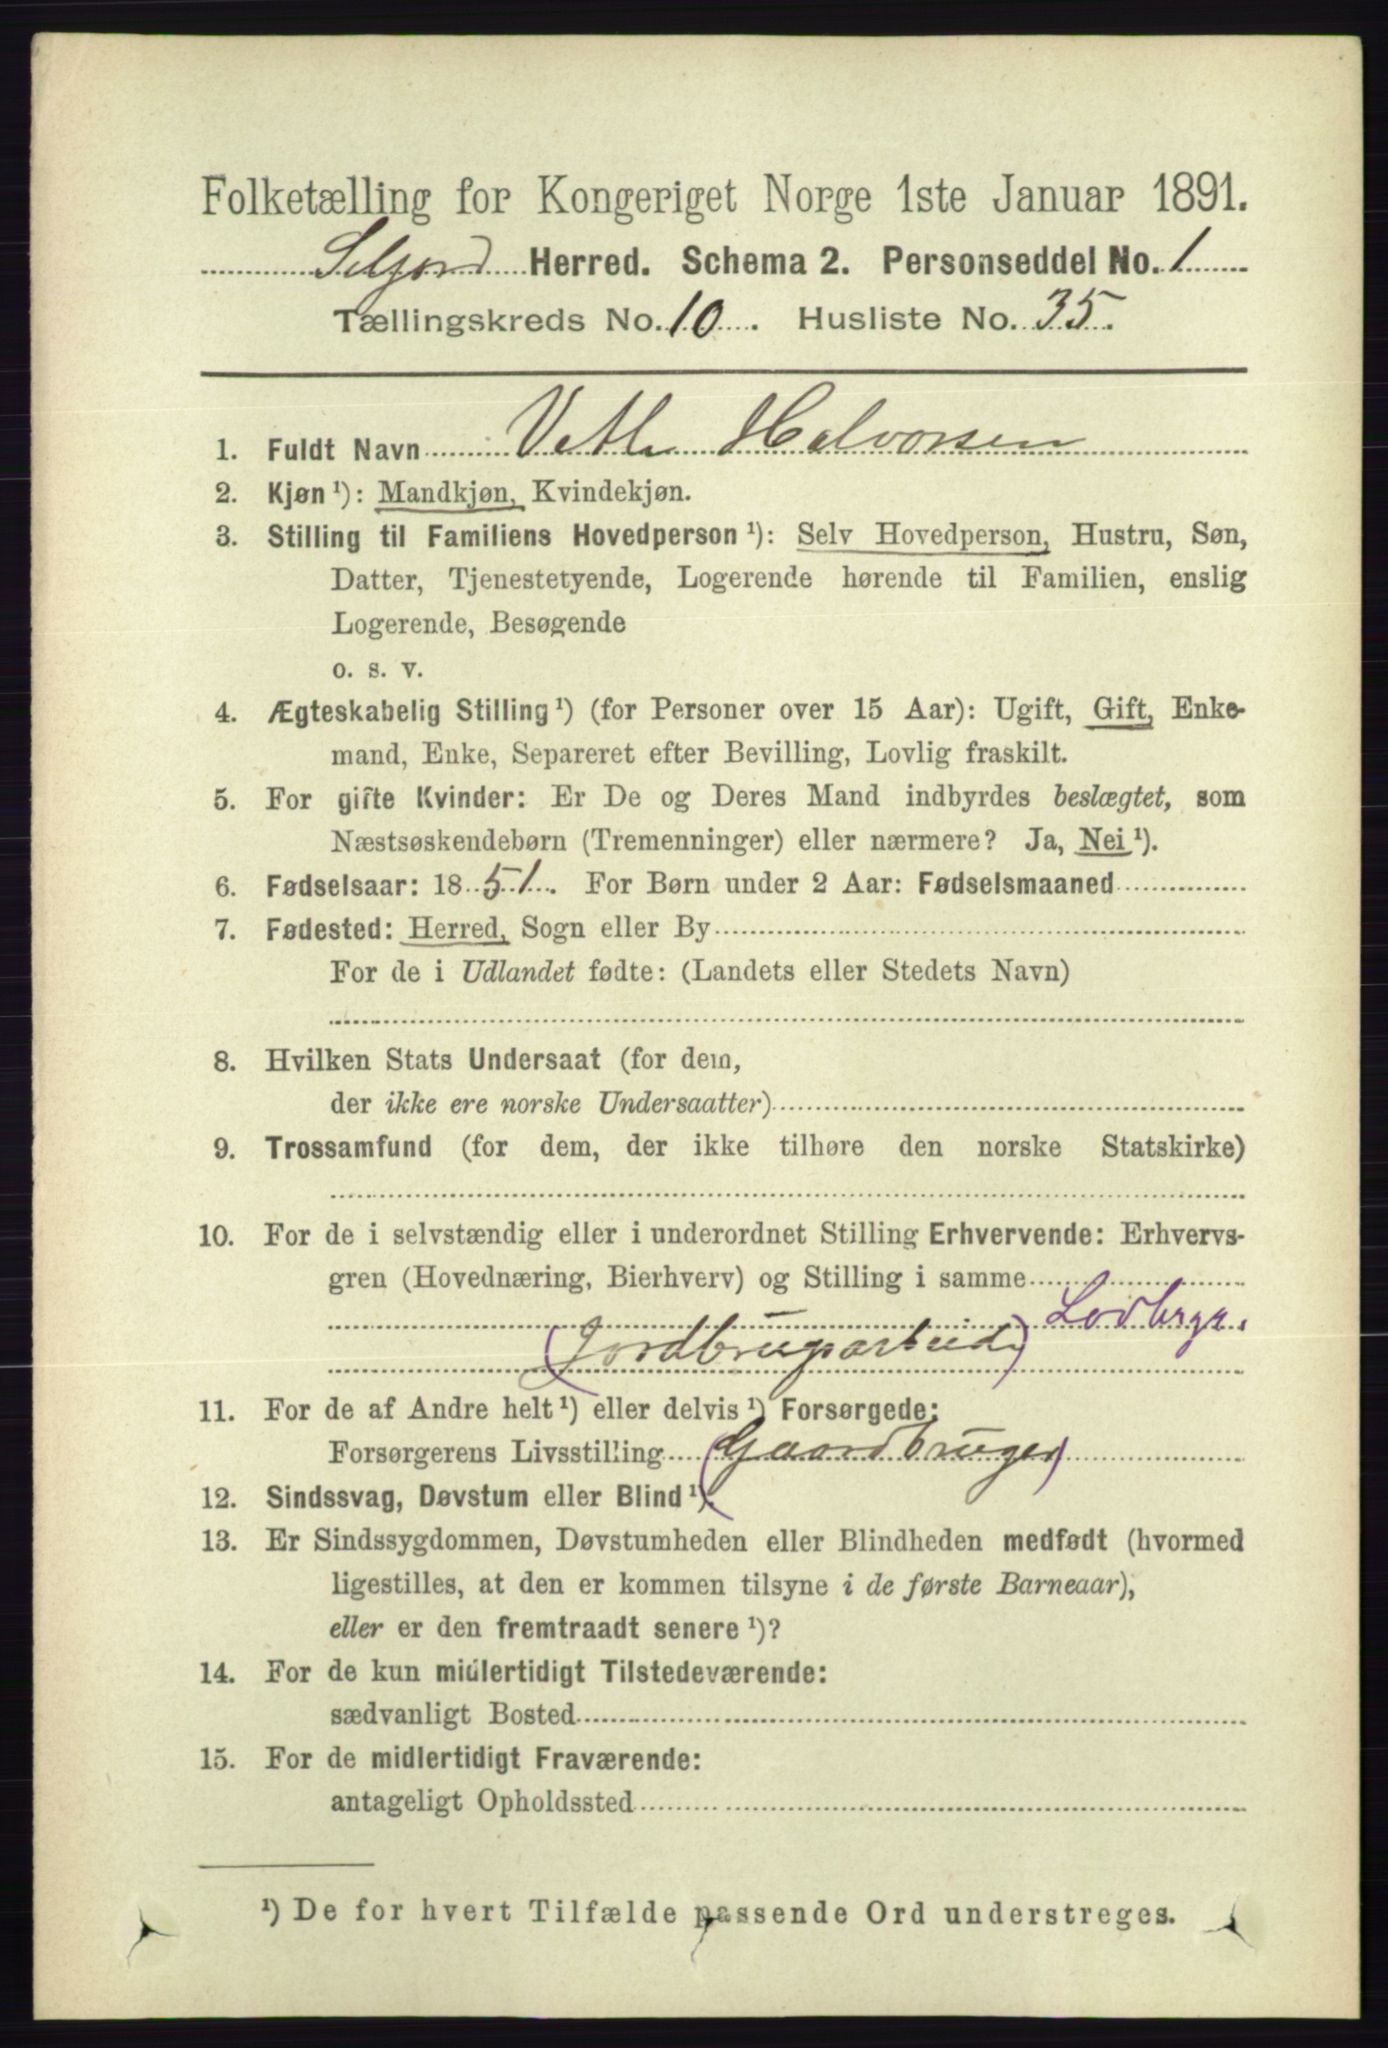 Folketælling for Kongeriget Norge 1ste Januar 1891.
Seljord Herred. Schema 2. Personseddel No. 1
Tællingskreds No. 10. Husliste No. 35.
1. Fuldt Navn Vetle Halvorsen
2. Kjøn ¹): Mandkjøn, Kvindekjøn.
3. Stilling til Familiens Hovedperson ¹): Selv Hovedperson, Hustru, Søn,
Datter, Tjenestetyende, Logerende hørende til Familien, enslig
Logerende, Besøgende
o. s. v.
4. Ægteskabelig Stilling ¹) (for Personer over 15 Aar): Ugift, Gift, Enke-
mand, Enke, Separeret efter Bevilling, Lovlig fraskilt.
5. For gifte Kvinder: Er De og Deres Mand indbyrdes beslægtet, som
Næstsøskendebørn (Tremenninger) eller nærmere? Ja, Nei ¹).
6. Fødselsaar: 1851. For Børn under 2 Aar: Fødselsmaaned
7. Fødested: Herred, Sogn eller By
For de i Udlandet fødte: (Landets eller Stedets Navn)
8. Hvilken Stats Undersaat (for dem,
der ikke ere norske Undersaatter)
9. Trossamfund (for dem, der ikke tilhøre den norske Statskirke)
10. For de i selvstændig eller i underordnet Stilling Erhvervende: Erhvervs-
gren (Hovednæring, Bierhverv) og Stilling i samme
(Jordbrugsarbeide)
11. For de af Andre helt ¹) eller delvis ¹) Forsørgede:
Forsørgerens Livsstilling (Gaardbruger)
12. Sindssvag, Døvstum eller Blind ¹).
13. Er Sindssygdommen, Døvstumheden eller Blindheden medfødt (hvormed
ligestilles, at den er kommen tilsyne i de første Barneaar),
eller er den fremtraadt senere ¹)?
14. For de kun midlertidigt Tilstedeværende:
sædvanligt Bosted
15. For de midlertidigt Fraværende:
antageligt Opholdssted
¹) De for hvert Tilfælde passende Ord understreges.